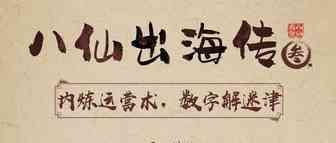 八仙出海传 叁
内炼运营术，数字解迷津